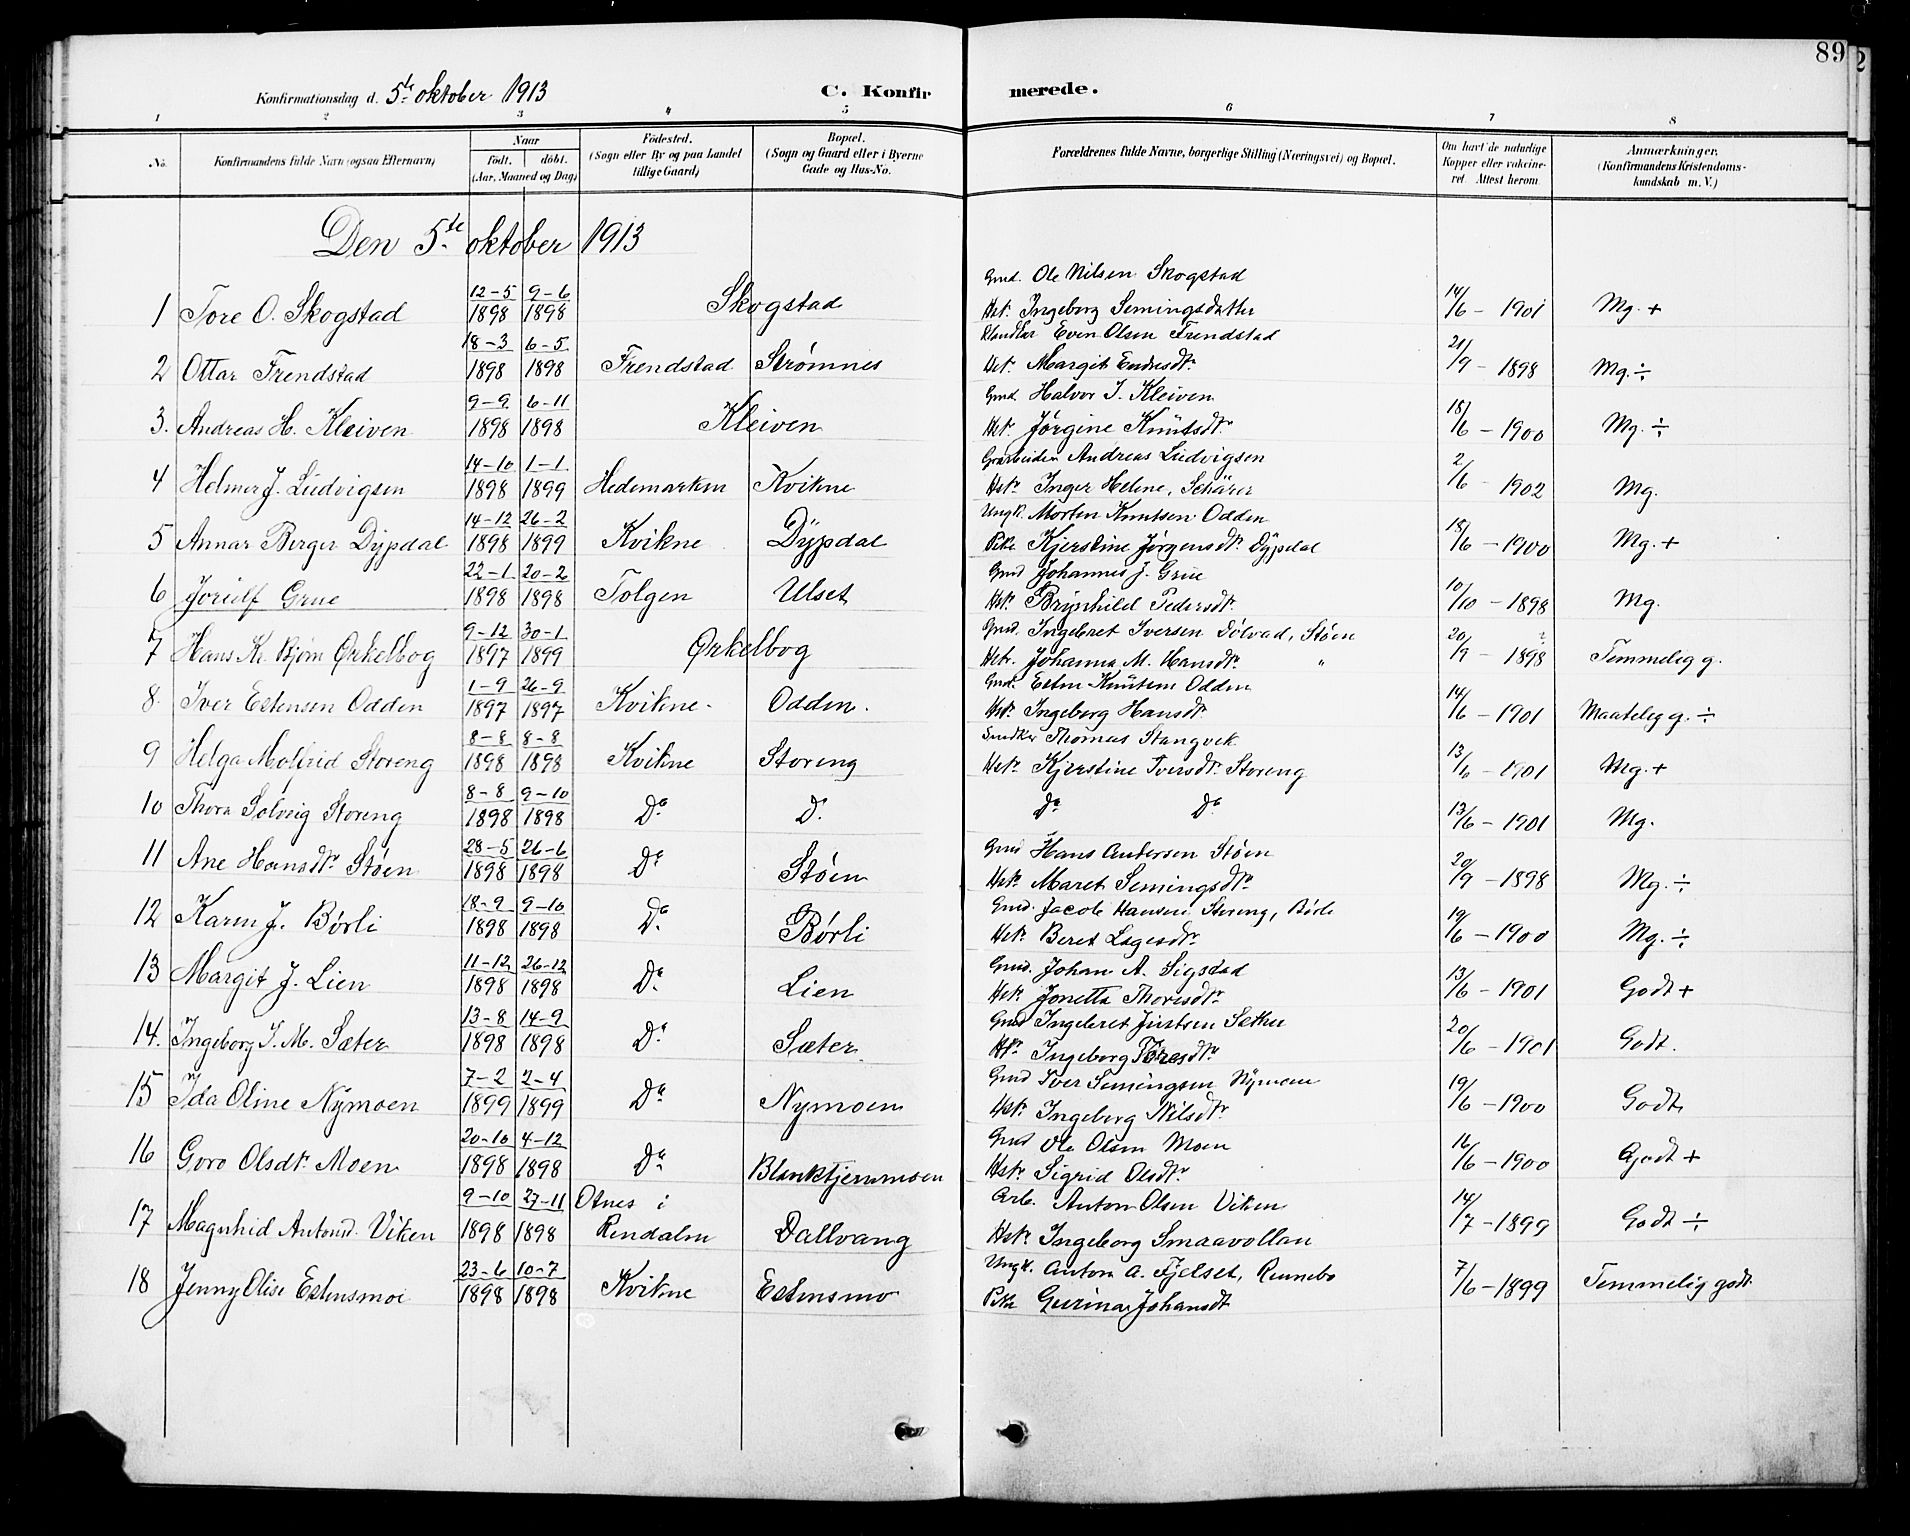 89
2
Konfirmationsdag d. 5te oktober 1913 C. Konfirmerede.
1 2 3 4 5 6 7 8
No. Konfirmandens fulde Navn (ogsaa Efternavn) Naar født. døbt. (Aar, Maaned og Dag) Fødested. (Sogn eller By og paa Landet tillige Gaard) Bopæl. (Sogn og Gaard eller i Byerne Gade og Hus-No. Forældrenes fulde Navne, borgerlige Stilling (Næringsvei) og Bopæl. Om havt de naturlige Kopper eller vakcineret. Attest herom. Anmærkninger. (Konfirmandens Kristendomskundskab m. V.)
Den 5te oktober 1913
1 Tore O. Skogstad 12-5 1898 9-6 1898 Skogstad Gmd. Ole Nilsen Skogstad Hst. Ingeborg Semingsdatter 14/6 - 1901 Mg. +
2 Ottar Frendstad 18-3 1898 6-5 1898 Frendstad Strømnes Even Olsen Frendstad Hst. Margit Endresdtr 21/9 - 1898 Mg. ÷
3. Andreas H. Kleiven 9-9 1898 6-11 1898 Kleiven Gmd. Halvor J. Kleiven Hst. Jørgine Knutsdtr 18/6 - 1900 Mg. ÷
4 Helmer J. Ludvigsen 14-10 1898 1-1 1899 Hedemarken Kvikne Andreas Ludvigsen Hstr Inger Helene Schärer 2/6 - 1902 Mg.
5 Annar Berger Dypdal 14-12 1898 26-2 1899 Kvikne Dypdal Ungk. Morten Knutsen Odden Pike Kjerstine Jørgensdtr Dypdal 18/6 - 1900 Mg. +
6 Joriulf Grue 22-1 1898 20-2 1898 Tolgen Ulset Gmd Johannes J. Grue Hst. Brynhild Pedersdtr 10/10 - 1898 Mg.
7 Hans Kr. Bjørn Orkelbog 9-12 1897 30-1 1899 Orkelbog Gmd. Ingebret Iversen Dølvad, Støen Hstr. Johanna M. Hansdtr " 20/9 - 1898 Temmelig g.
8. Iver Estensen Odden 1-9 1897 26-9 1897 Kvikne - Odden. Gmd. Esten Knutsen Odden Hstr. Ingeborg Hansdtr 14/6 - 1901 Maatelig g. ÷
9 Helga Molfrid Storeng 8-8 1898 8-8 1898 Kvikne Storeng Snedker Thomas Stangvik Hstr. Kjerstine Iversdtr Storeng 13/6 - 1901 Mg. +
10 Thora Solveig Storeng 8-8 1898 9-10 1898 Do D. Do Do 13/6 - 1901 Mg.
11 Ane Hansdtr Støen 28-5 1898 26-6 1898 Do Støen Gmd Hans Andersen Støen Hstr. Maret Semingsdtr 20/9 - 1898 Mg. ÷
12 Karen J. Børli 18-9 1898 9-10 1898 Do Børli Gmd. Jacob Hansen Storeng, Børli Hstr. Beret Lagesdtr 19/6 - 1900 Mg. ÷
13 Margit J. Lien 11-12 1898 26-12 1898 Do Lien Gmd. Johan A. Sigstad Hstr. Jonetta Thoresdtr 13/6 - 1901 Godt +
14. Ingeborg I. M. Sæter 13-8 1898 14-9 1898 Do Sæter Gmd Ingebret Justsen Sæther Hstr Ingeborg Toresdtr 20/6 - 1901 Godt.
15 Ida Oline Nymoen 7-2 1899 2-4 1899 Do Nymoen Gmd Iver Semingsen Nymoen Hstr. Ingeborg Nilsdtr 19/6 - 1900 Godt
16 Goro Olsdtr Moen 20-10 1898 4-12 1898 Do Blanktjernmoen Gmd Ole Olsen Moen Hstr. Sigrid Olsdtr 16/6 - 1900 Godt +
17 Magnhid Antond. Viken 9-10 1898 27-11 1898 Otnes i Rendalen Dallvang Arb. Anton Olsen Viken Hstr. Ingeborg Smaavollan 14/7 - 1899 Godt ÷
18 Jenny Olise Estensmoe 23-6 1898 10-7 1898 Kvikne Estensmo Ungk. Anton A. Fjelset, Rennebo Pike Gurina Johansdt 7/6 - 1899 Temmelig godt